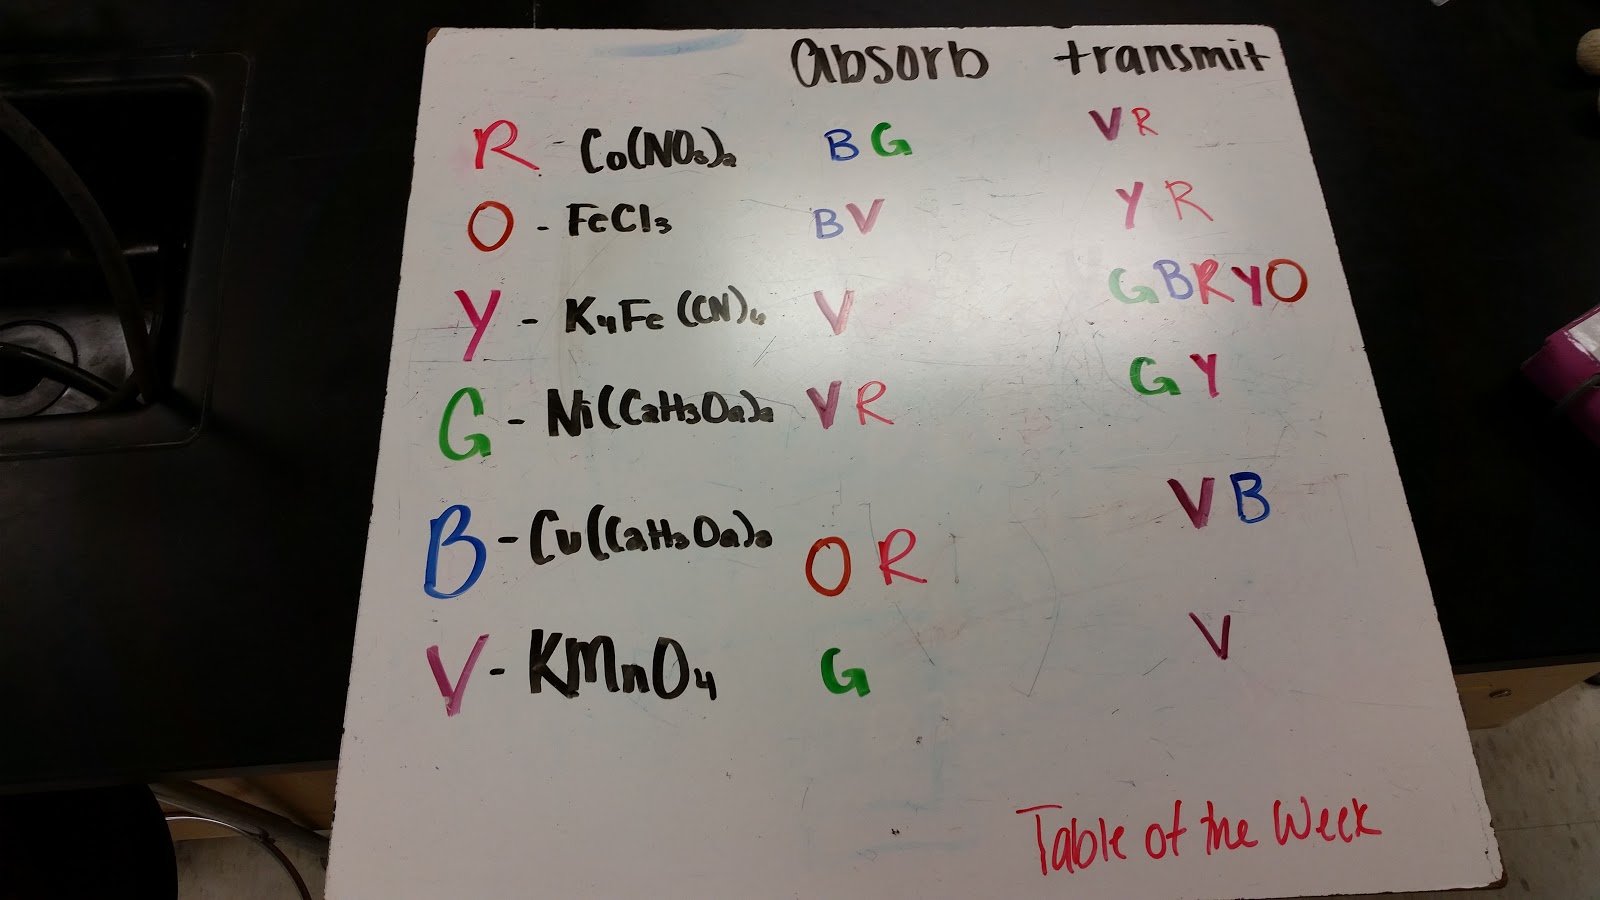 absorb transmit
R - Co(NO₃)₂ B G V R
O - FeCl₃ B V Y R
Y - K₄Fe(CN)₆ V G B R Y O
G - Ni(C₂H₃O₂)₂ V R G Y
B - Cu(C₂H₃O₂)₂ O R V B
V - KMnO₄ G V
Table of the Week